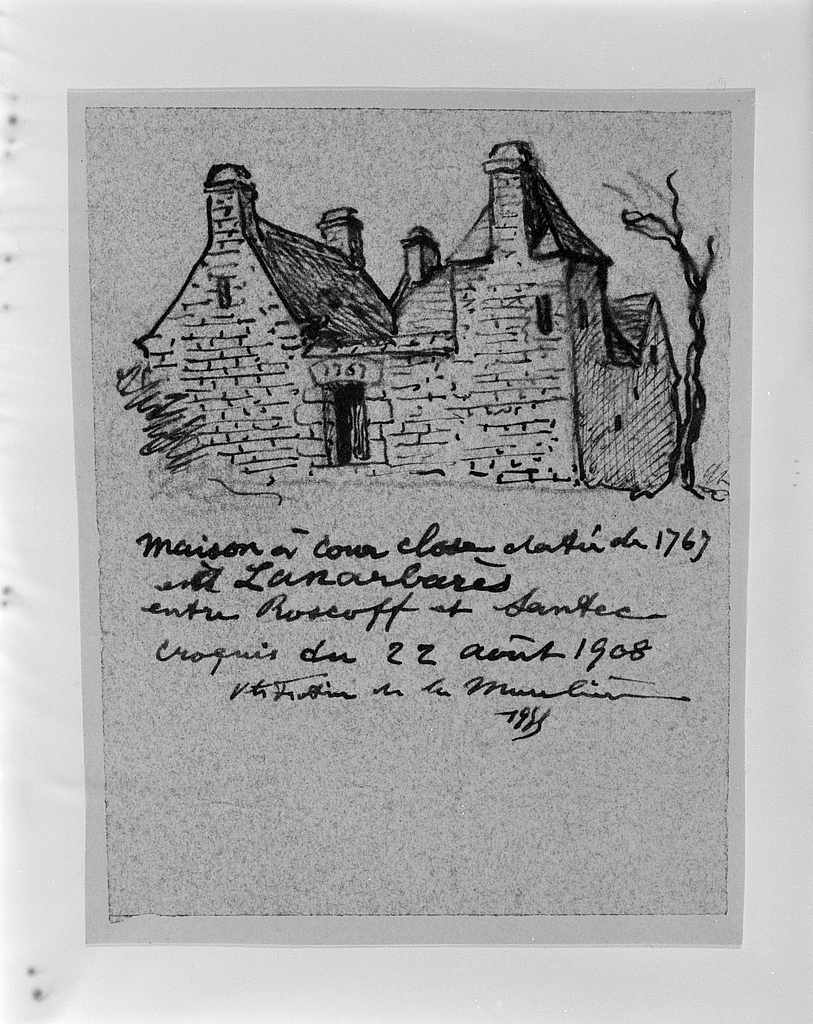 1767
maison à cour close datée de 1767
à Lanarbarès
entre Roscoff et Santec
croquis du 22 août 1908
Vte Frotier de la Messelière